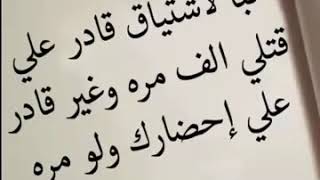 لاشتياق قادر علي
قتلي الف مره وغير قادر
علي إحضارك ولو مره